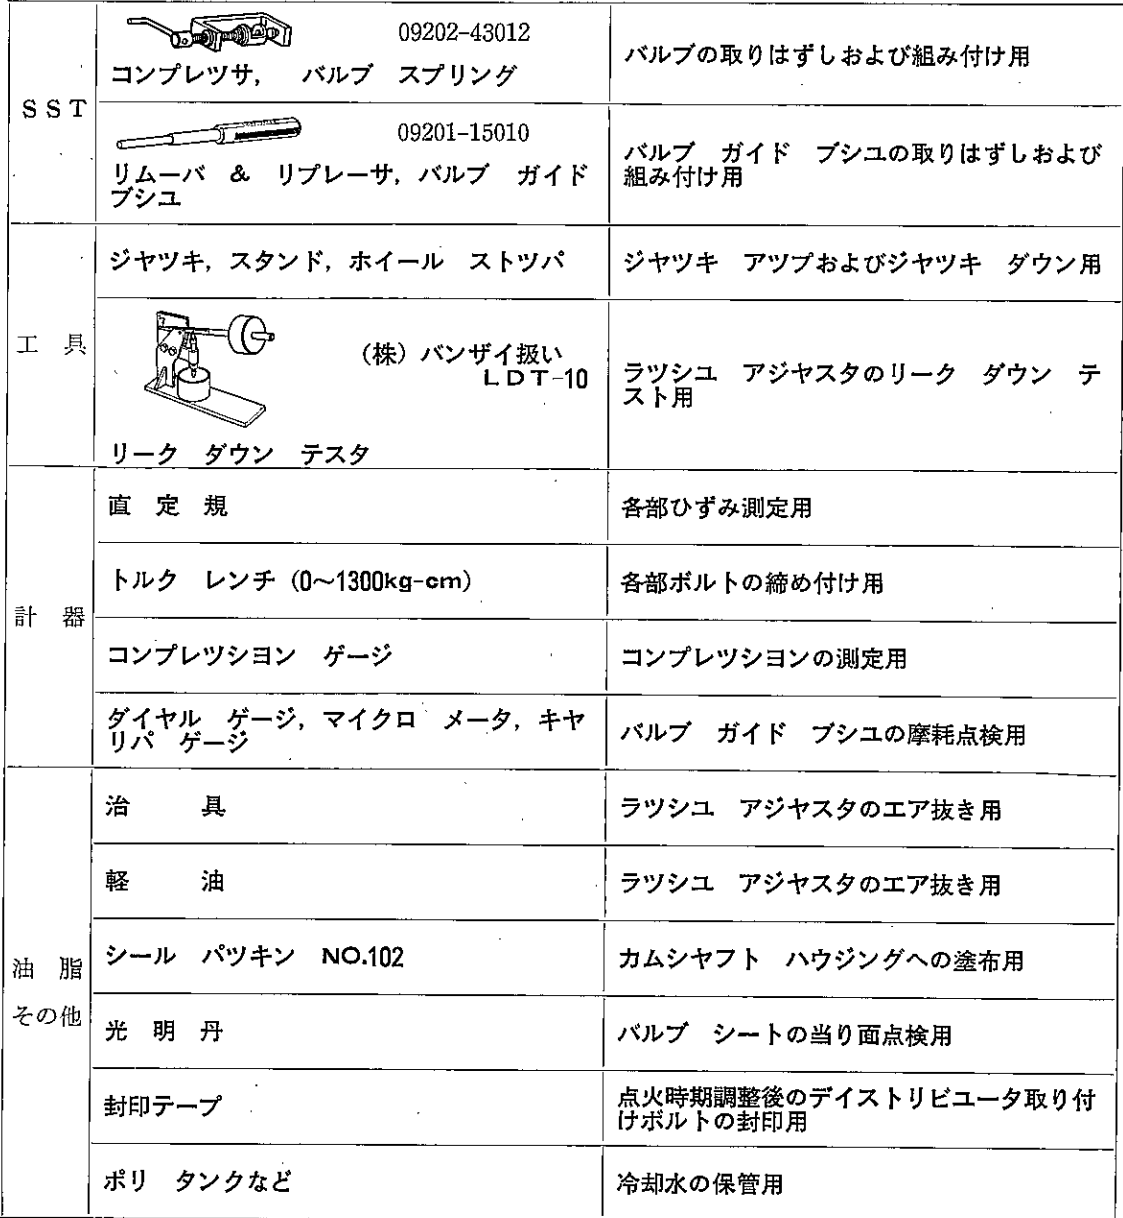 SST
09202-43012
コンプレツサ, バルブ スプリング
バルブの取りはずしおよび組み付け用
09201-15010
リムーバ & リプレーサ, バルブ ガイド
ブシユ
バルブ ガイド ブシユの取りはずしおよび
組み付け用
工 具
ジヤツキ, スタンド, ホイール ストツパ
ジヤツキ アツプおよびジヤツキ ダウン用
(株) バンザイ扱い
LDT-10
リーク ダウン テスタ
ラツシユ アジヤスタのリーク ダウン テ
スト用
計 器
直 定 規
各部ひずみ測定用
トルク レンチ (0~1300kg-cm)
各部ボルトの締め付け用
コンプレツシヨン ゲージ
コンプレツシヨンの測定用
ダイヤル ゲージ, マイクロ メータ, キヤ
リパ ゲージ
バルブ ガイド ブシユの摩耗点検用
油 脂
その他
治 具
ラツシユ アジヤスタのエア抜き用
軽 油
ラツシユ アジヤスタのエア抜き用
シール パツキン NO.102
カムシヤフト ハウジングへの塗布用
光 明 丹
バルブ シートの当り面点検用
封印テープ
点火時期調整後のデイストリビユータ取り付
けボルトの封印用
ポリ タンクなど
冷却水の保管用